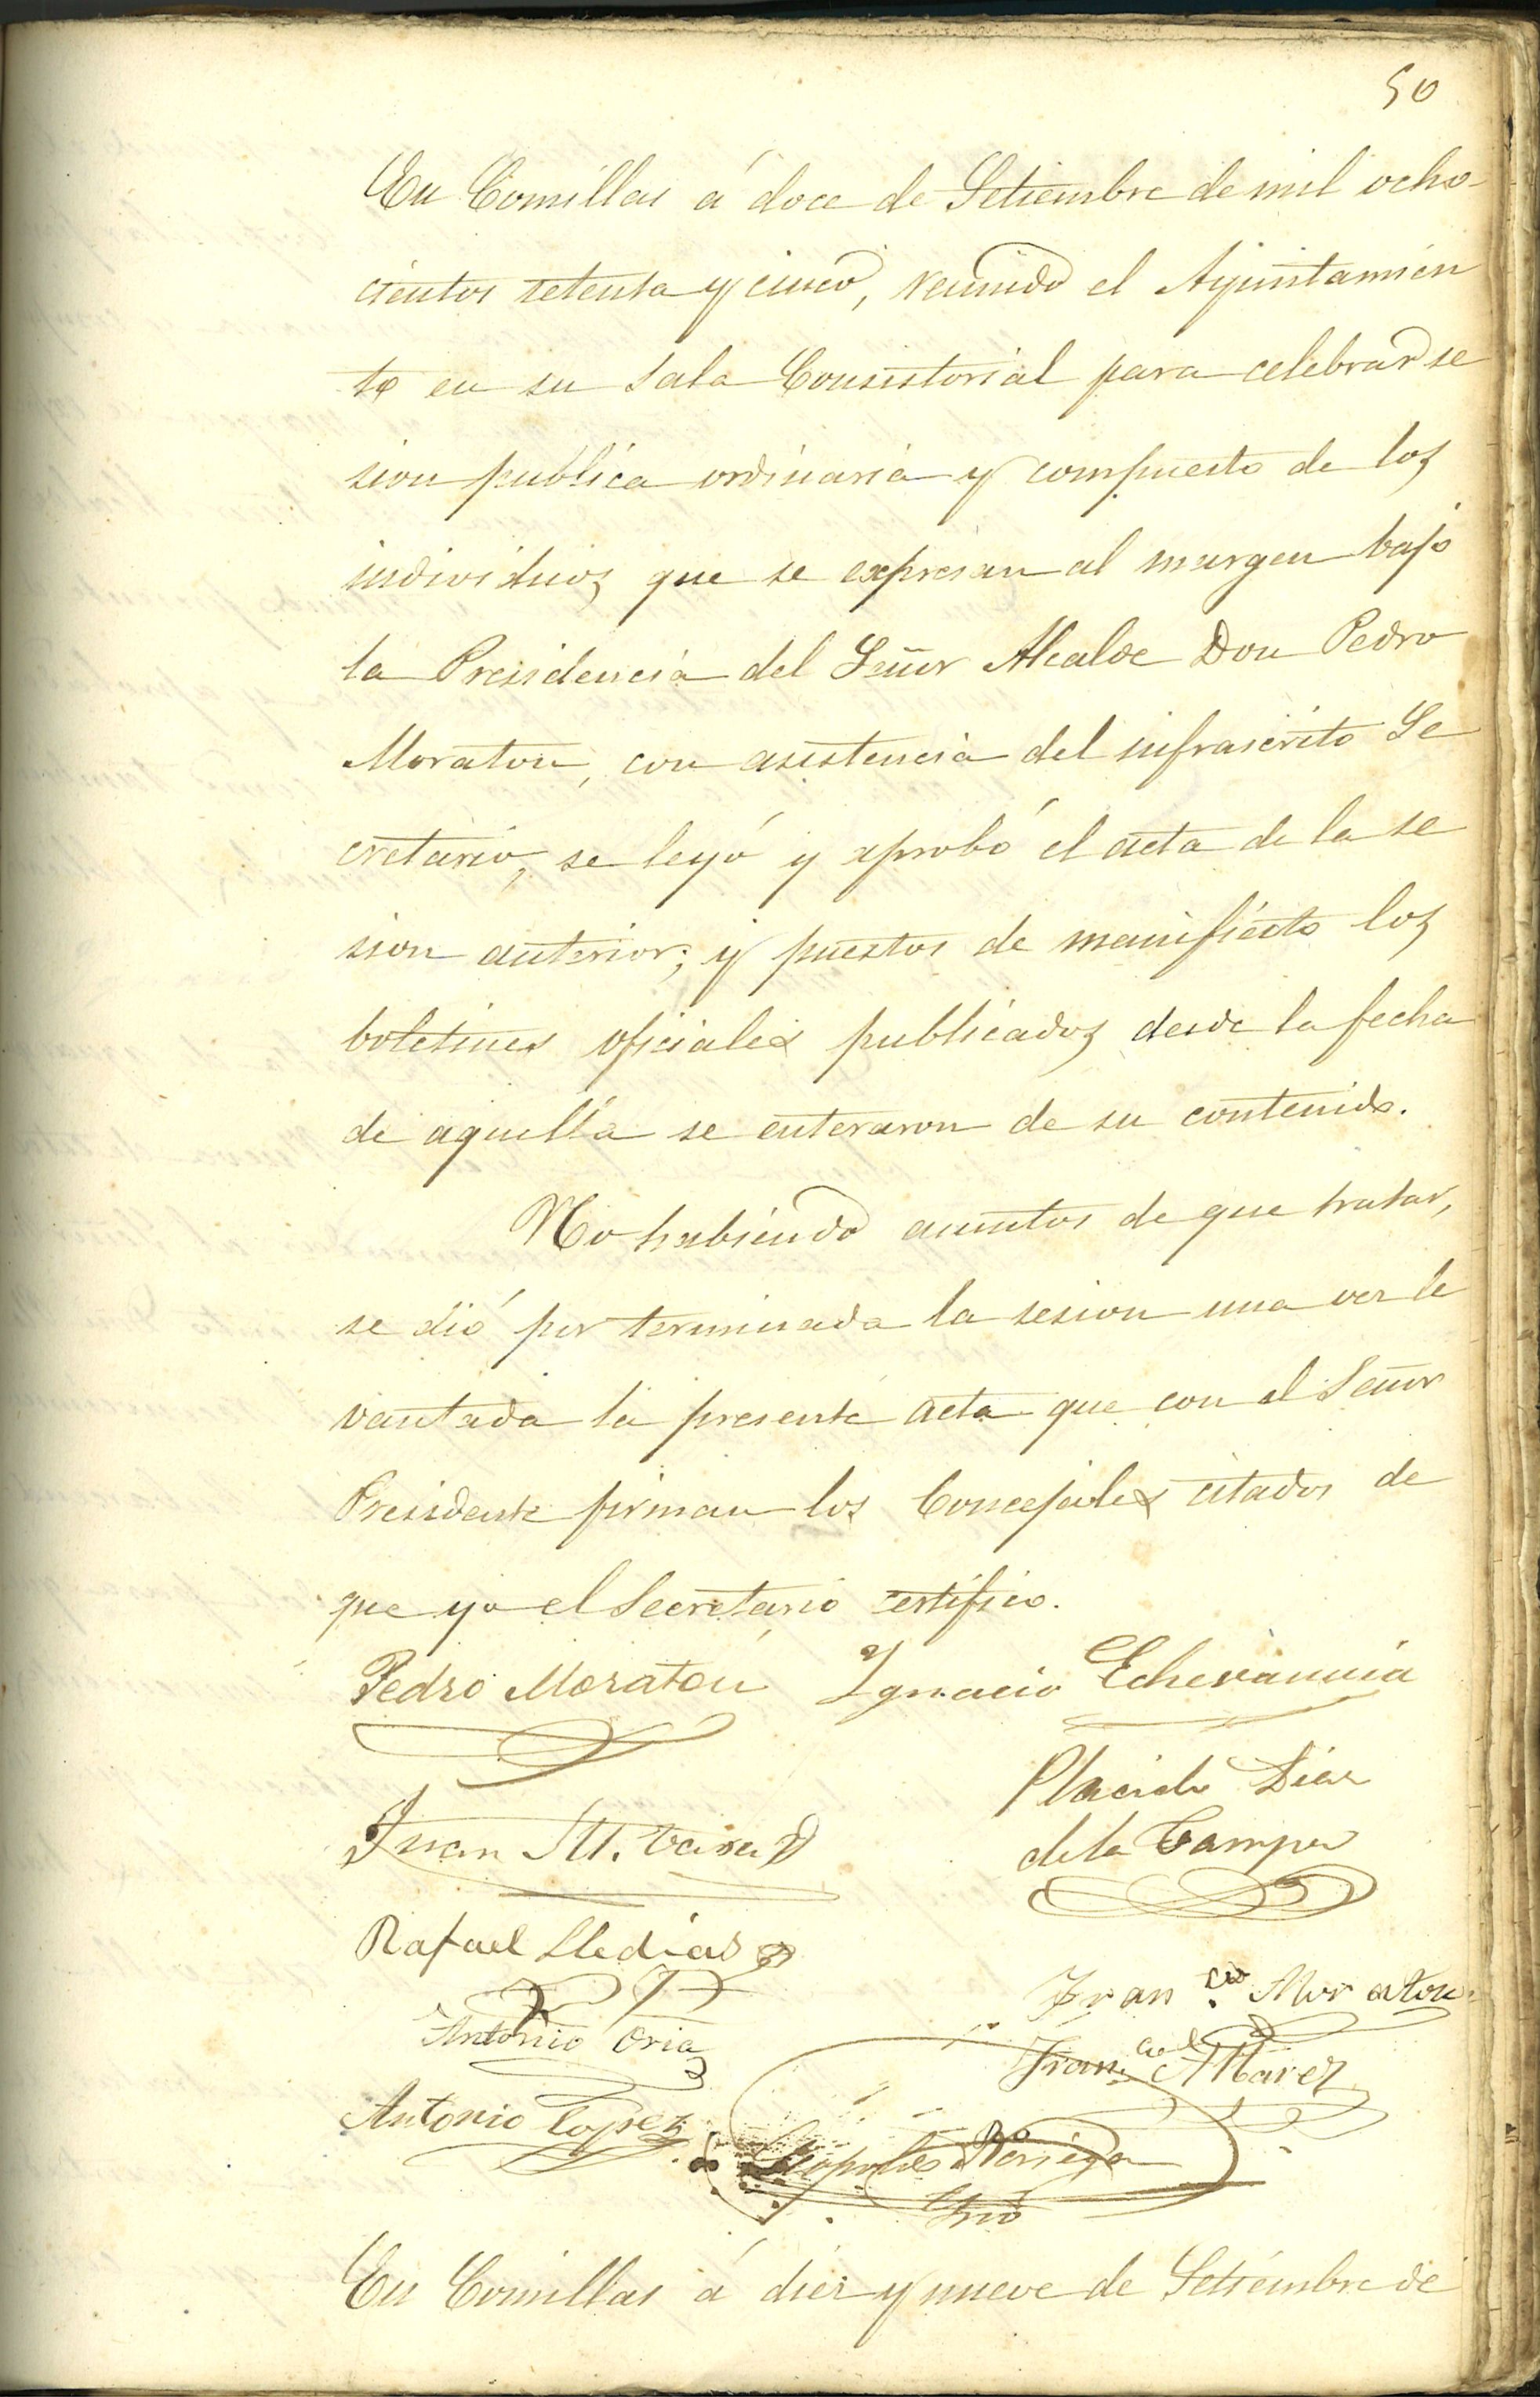 50
En Comillas á doce de Setiembre de mil ocho-
cientos setenta y cinco, reunido el Ayuntamien
to en su Sala Consistorial para celebrar se
sion publica ordinaria y compuesto de los
individuos que se expresan al margen bajo
la Presidencia del Señor Alcalde Don Pedro
Moraton, con asistencia del infrascrito Se
cretario, se leyó y aprobó el acta de la se
sion anterior; y puestos de manifiesto los
boletines oficiales publicados desde la fecha
de aquella se enteraron de su contenido.
No habiendo asuntos de que tratar,
se dió por terminada la sesion una vez le
vantada la presente acta que con el Señor
Presidente firman los Concejales citados de
que yo el Secretario certifico.
Pedro Moraton Ignacio Echevarria
Placido Diaz
Juan M. de la Campa
Rafael Lledias
Fran.co Moraton
Antonio Oria
Fran.co Alvarez
Antonio Lopez
Leopoldo Noriega
Srio
En Comillas á diez y nueve de Setiembre de